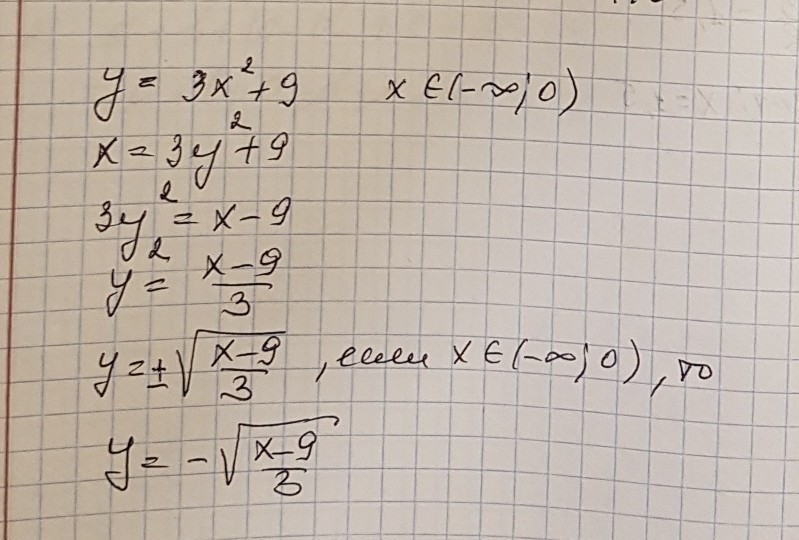 y = 3x² + 9 x ∈ (-∞; 0)
x = 3y² + 9
3y² = x - 9
y² = (x-9)/3
y = ±√((x-9)/3) , если x ∈ (-∞; 0) , то
y = -√((x-9)/3)